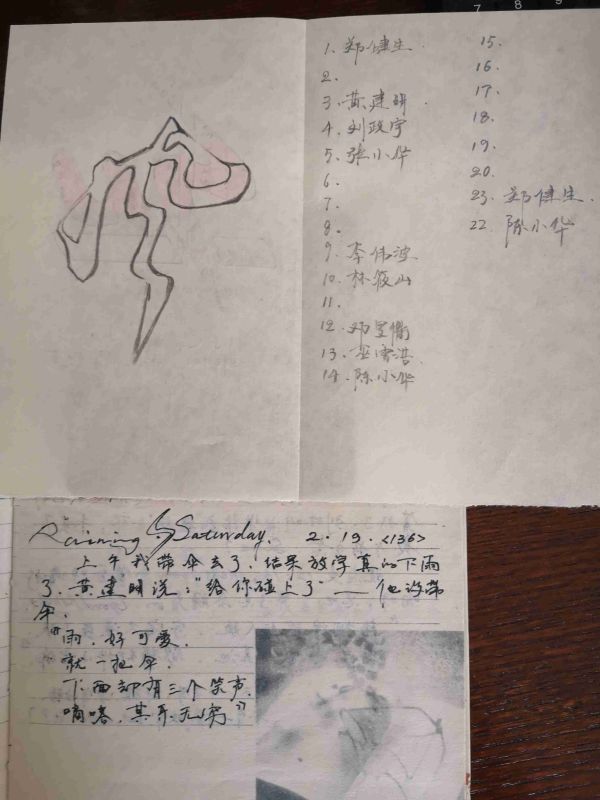 7 8 9
1. 郑健生.
2.
3. 黄建明.
4. 刘政宇
5. 张小华
6.
7.
8.
9. 李伟波
10. 林筱山
11.
12. 邓昱衢
13. 巫唐浩.
14. 陈小华
15.
16.
17.
18.
19.
20.
23. 郑健生.
22. 陈小华
Raining Saturday. 2. 19. <136>
上午我带伞去了,结果放学真的下雨
了.黄建明说:"给你碰上了"——他没带
伞.
"雨.好可爱.
就一把伞.
下面却有三个笑声.
嘀嗒.其乐无穷"